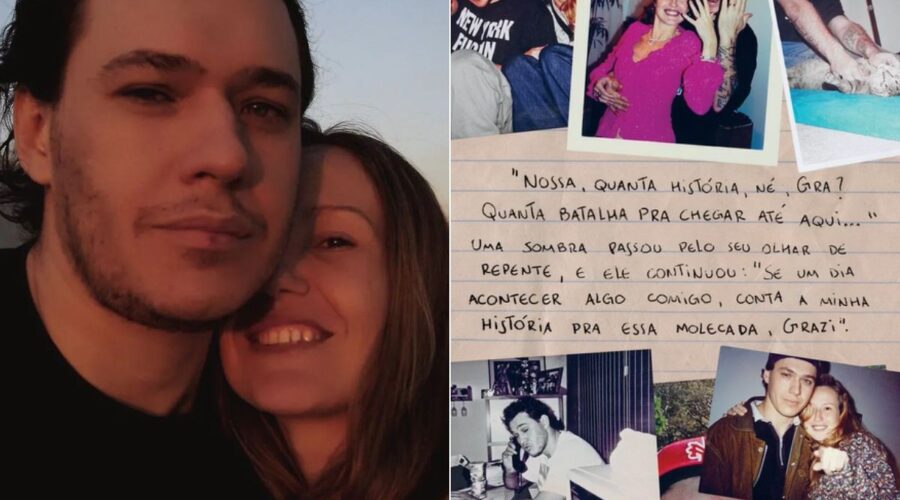 NEW YORK
FUCKIN
"NOSSA, QUANTA HISTÓRIA, NÉ, GRA?
QUANTA BATALHA PRA CHEGAR ATÉ AQUI..."
UMA SOMBRA PASSOU PELO SEU OLHAR DE
REPENTE, E ELE CONTINUOU: "SE UM DIA
ACONTECER ALGO COMIGO, CONTA A MINHA
HISTÓRIA PRA ESSA MOLECADA, GRAZI".